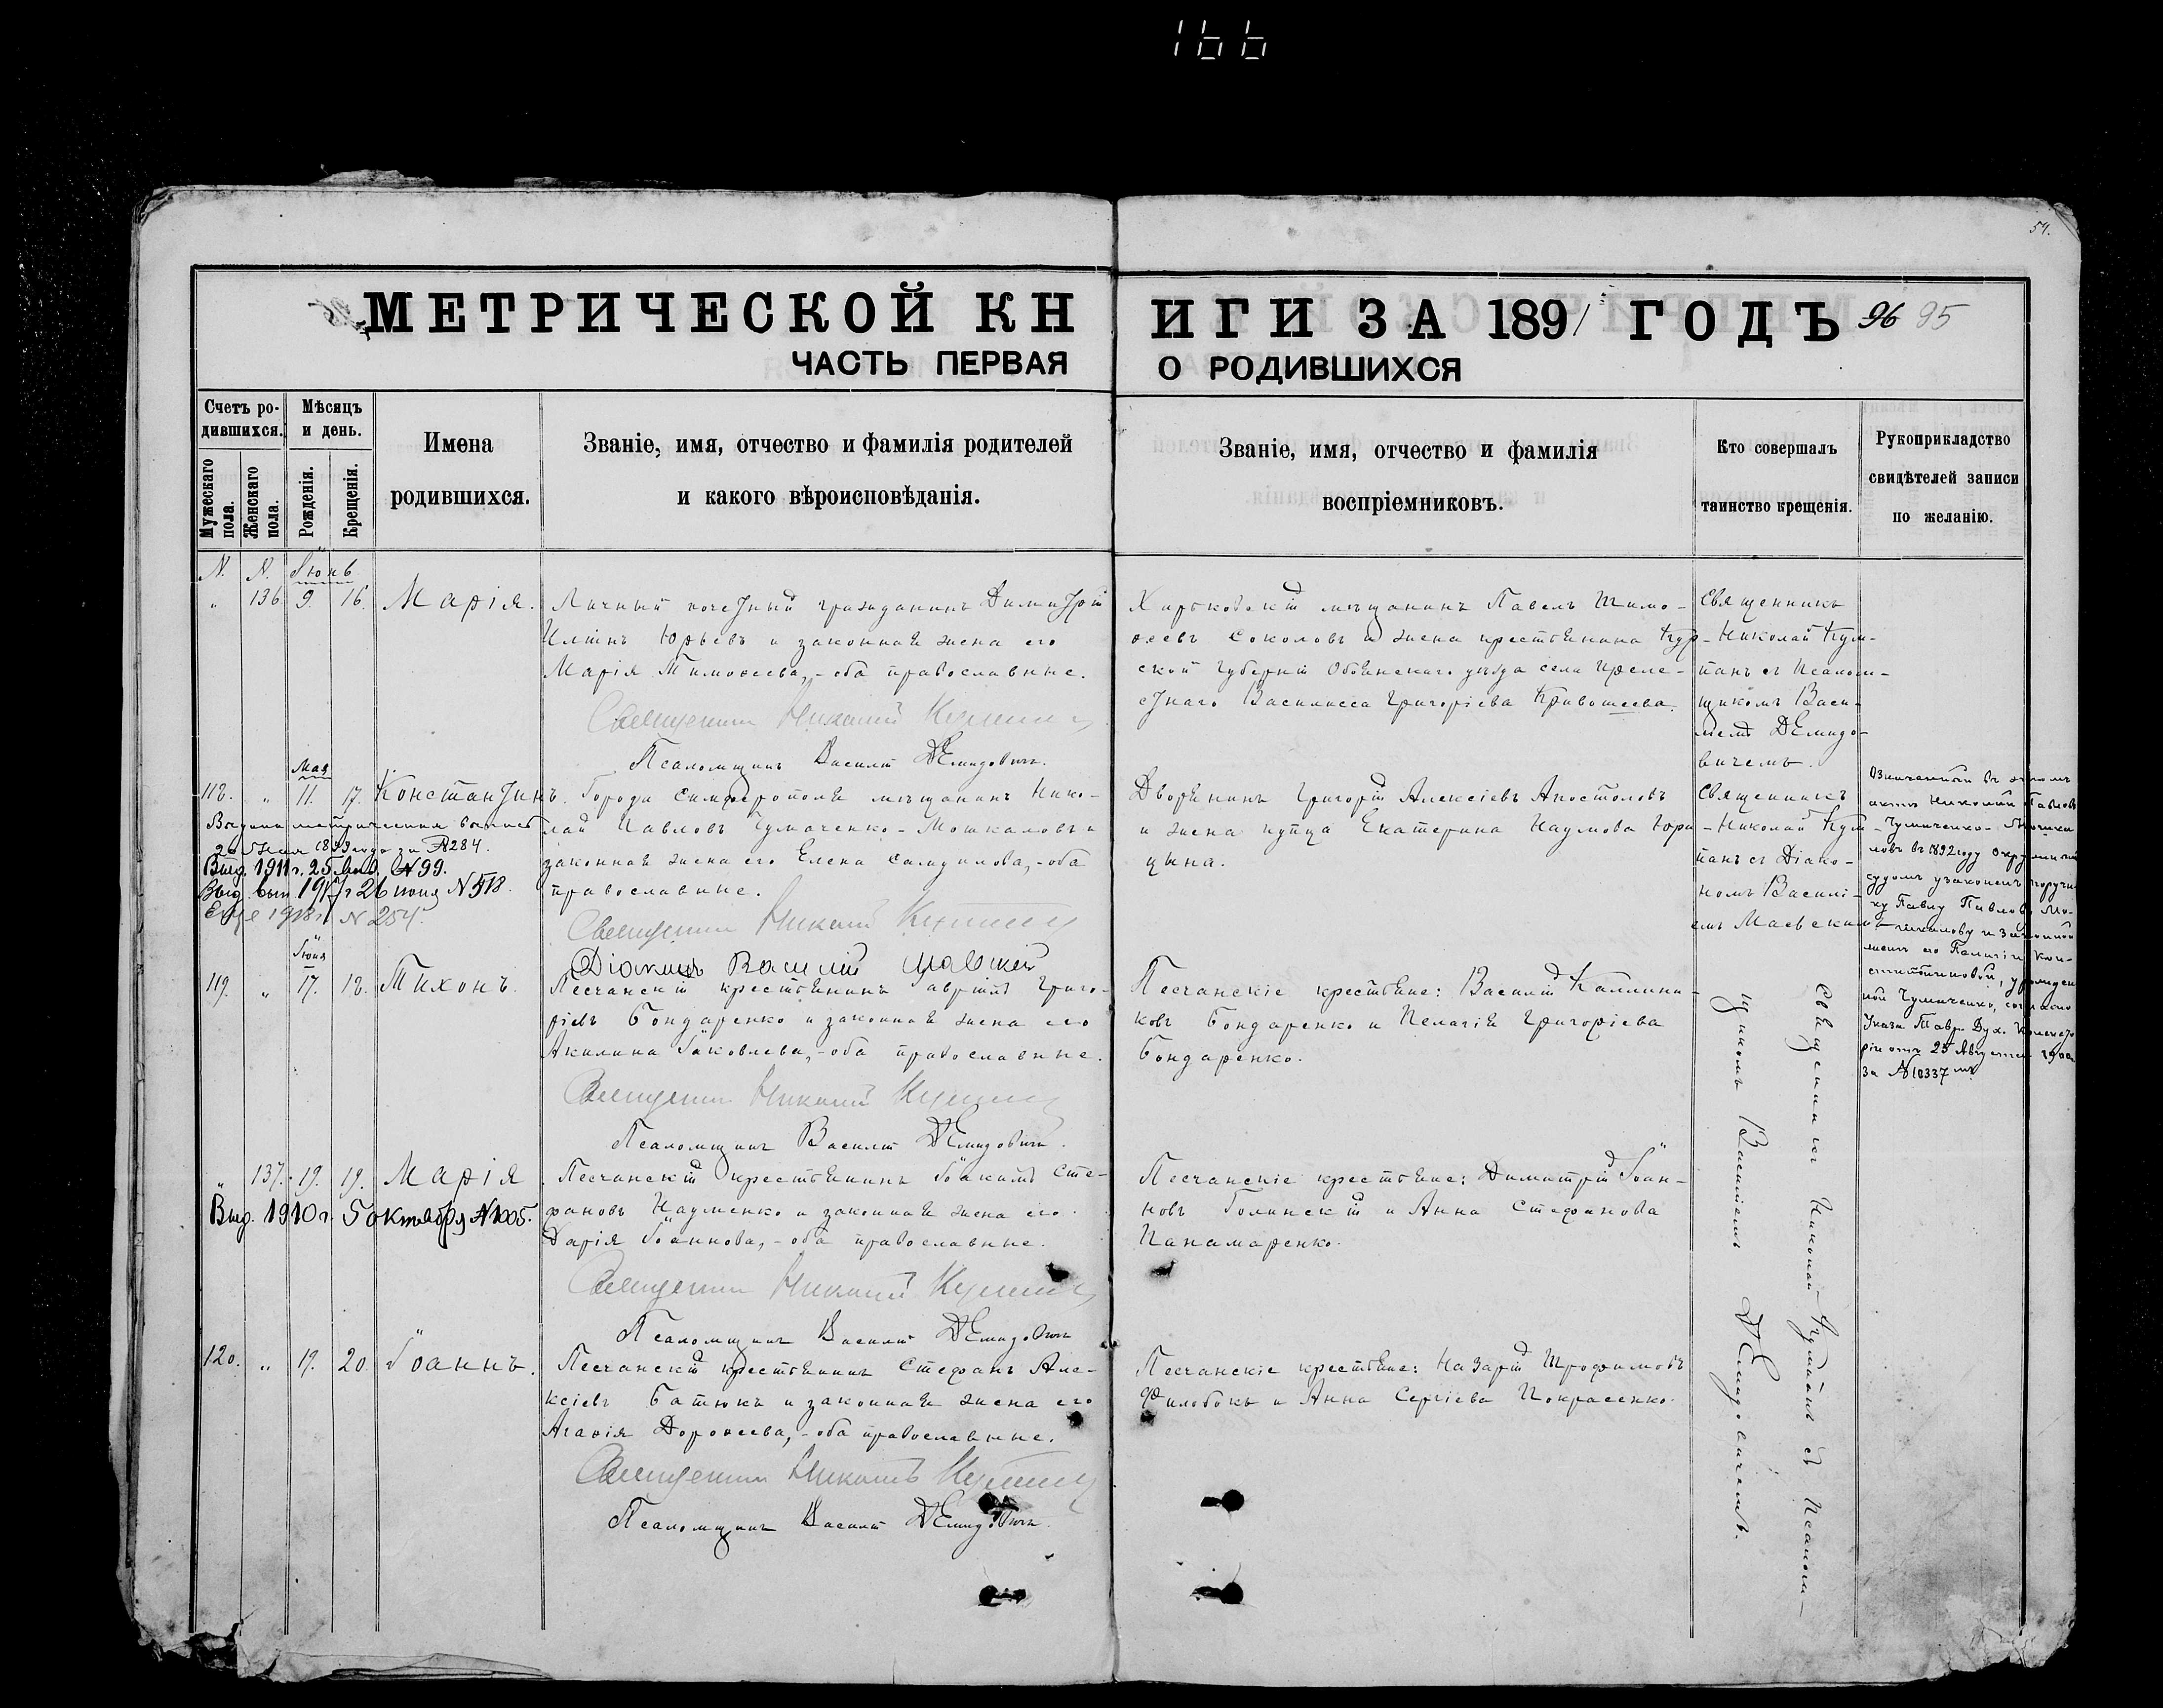 166
54.
МЕТРИЧЕСКОЙ КНИГИ ЗА 1891 ГОДЪ 96 95
ЧАСТЬ ПЕРВАЯ О РОДИВШИХСЯ
Счетъ ро-
дившихся.
Мужескаго пола.
Женскаго пола.
Мѣсяцъ
и день.
Рожденія.
Крещенія.
Имена
родившихся.
Званіе, имя, отчество и фамилія родителей
и какого вѣроисповѣданія.
Званіе, имя, отчество и фамилія
воспріемниковъ.
Кто совершалъ
таинство крещенія.
Рукоприкладство
свидѣтелей записи
по желанію.
N. N. Іюнь
" 136. 9. 16. Марія.
Личный почетный гражданинъ Димитрій
Иліинъ Юрьевъ и законная жена его
Марія Тимоѳеева, - оба православные.
Священник Николай
Псаломщикъ Василій Демидовичъ.
Харьковскій мѣщанинъ Павелъ Тимо-
ѳеевъ Соколовъ и жена крестьянина Кур-
ской губерніи Обоянскаго уѣзда села
Василисса Григоріева Кривошеева.
Священникъ
Николай
танъ съ Псалом-
щикомъ Васи-
ліемъ Демидо-
вичемъ.
Мая
118. " 11. 17. Константинъ.
Города Симферополя мѣщанинъ Нико-
лай Павловъ Чумаченко-Мошкаловъ и
законная жена его Елена Самуилова, - оба
православные.
Священник Николай
Діаконъ Василій Маевскій
Выд. 1911 г. 25 N 99.
Выд. вып. 1917 г 26 июня N 518.
Еще 1918 г. N 254.
Дворянинъ Григорій Алексіевъ Апостоловъ
и жена купца Екатерина Наумова Юри-
цына.
Священникъ
Николай
танъ съ Діако-
номъ Василі-
емъ Маевским
Означенный въ этомъ
актѣ Николай Павловъ
Чумаченко-
ловъ въ 1892 году Окружнымъ
судомъ узаконенъ поручи-
ку Павлу Павлову Мо-
шкалову и законной
женѣ его
стантиновой, урожден-
ной Чумаченко, согласно
Указа Тавр. Дух. Консисто-
ріи отъ 25 Августа 1900
за N 10337
Іюня
119. " 17. 18. Тихонъ.
Песчанскій крестьянинъ Гавріилъ Григо-
ріевъ Бондаренко и законная жена его
Акилина Іаковлева, - оба православные.
Священник Николай
Псаломщикъ Василій Демидовичъ.
Песчанскіе крестьяне: Василій Каллини-
ковъ Бондаренко и Пелагія Григоріева
Бондаренко.
Священникъ Николай съ Псалом-
щикомъ Василіемъ Демидовичемъ.
" 137. 19. 19. Марія
Песчанскій крестьянинъ Іоакимъ Сте-
фановъ Науменко и законная жена его
Дарія Іоаннова, - оба православные.
Священник Николай
Псаломщикъ Василій Демидовичъ
Выд. 1910 г. 5 октября N 1005.
Песчанскіе крестьяне: Димитрій Іоан-
новъ Голинскій и Анна Стефанова
Панамаренко.
120. " 19. 20. Іоаннъ.
Песчанскій крестьянинъ Стефанъ Але-
ксіевъ Батюкъ и законная жена его
Агаѳія Дороѳеева, - оба православные.
Священник Николай
Псаломщикъ Василій Демидовичъ.
Песчанскіе крестьяне: Назарій Трофимовъ
и Анна Сергіева Покрасенко.